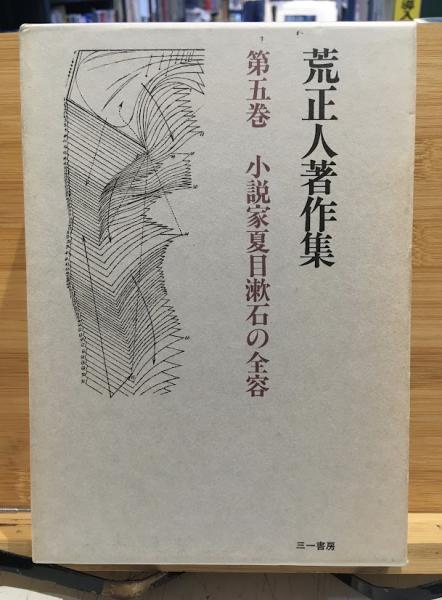 荒正人著作集
第五巻 小説家夏目漱石の全容
三一書房